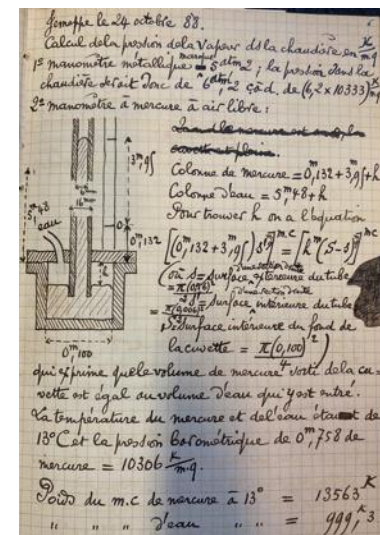 Jemeppe le 24 octobre 88.
6
Calcul de la pression de la vapeur ds la chaudière en K/mq
1º manomètre métallique marque 5 atm 2 ; la pression dans la
chaudière serait donc de 6 atm, 2 çàd. de (6,2 x 10333) K/mq
2º manomètre à mercure à air libre :
Colonne de mercure = 0,m132 + 3,m95 + h
Colonne d'eau = 5,m48 + h
Pour trouver h on a l'équation
[(0,m132 + 3,m95) s']m.c = [h m (S-s)]mc
(où s = surface extérieure du tube
s' = surface intérieure du tube
S = surface intérieure du fond de
la cuvette = π(0,100)²/4)
qui exprime que le volume de mercure sorti de la cu-
vette est égal au volume d'eau qui y est entré.
La température du mercure et de l'eau étant de
13°C et la pression barométrique de 0,m758 de
mercure = 10306 K/m.q.
Poids du m.c de mercure à 13° = 13563 K
" " " d'eau " " = 999,K3
3,m95
5,m48
eau
16mm
0
0,m132
h
0,m100